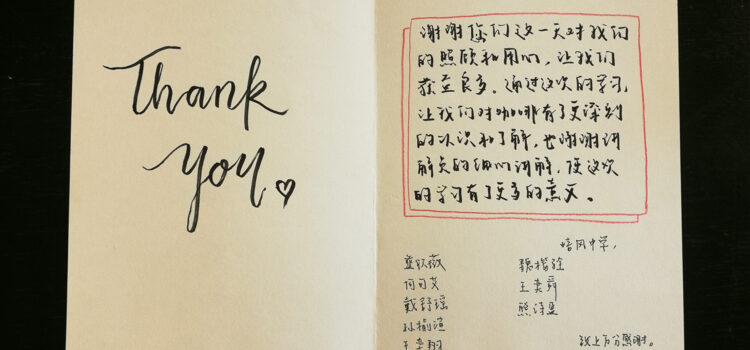 Thank
you
谢谢您们这一天对我们
的照顾和用心,让我们
获益良多。通过这次的学习,
让我们对咖啡有了更深刻
的认识和了解,也谢谢讲
解员的细心讲解,使这次
的学习有了更多的意义。
培风中学,
何可艾
戴舒瑶
王奕舜
熊诗盈
致上万分感谢。